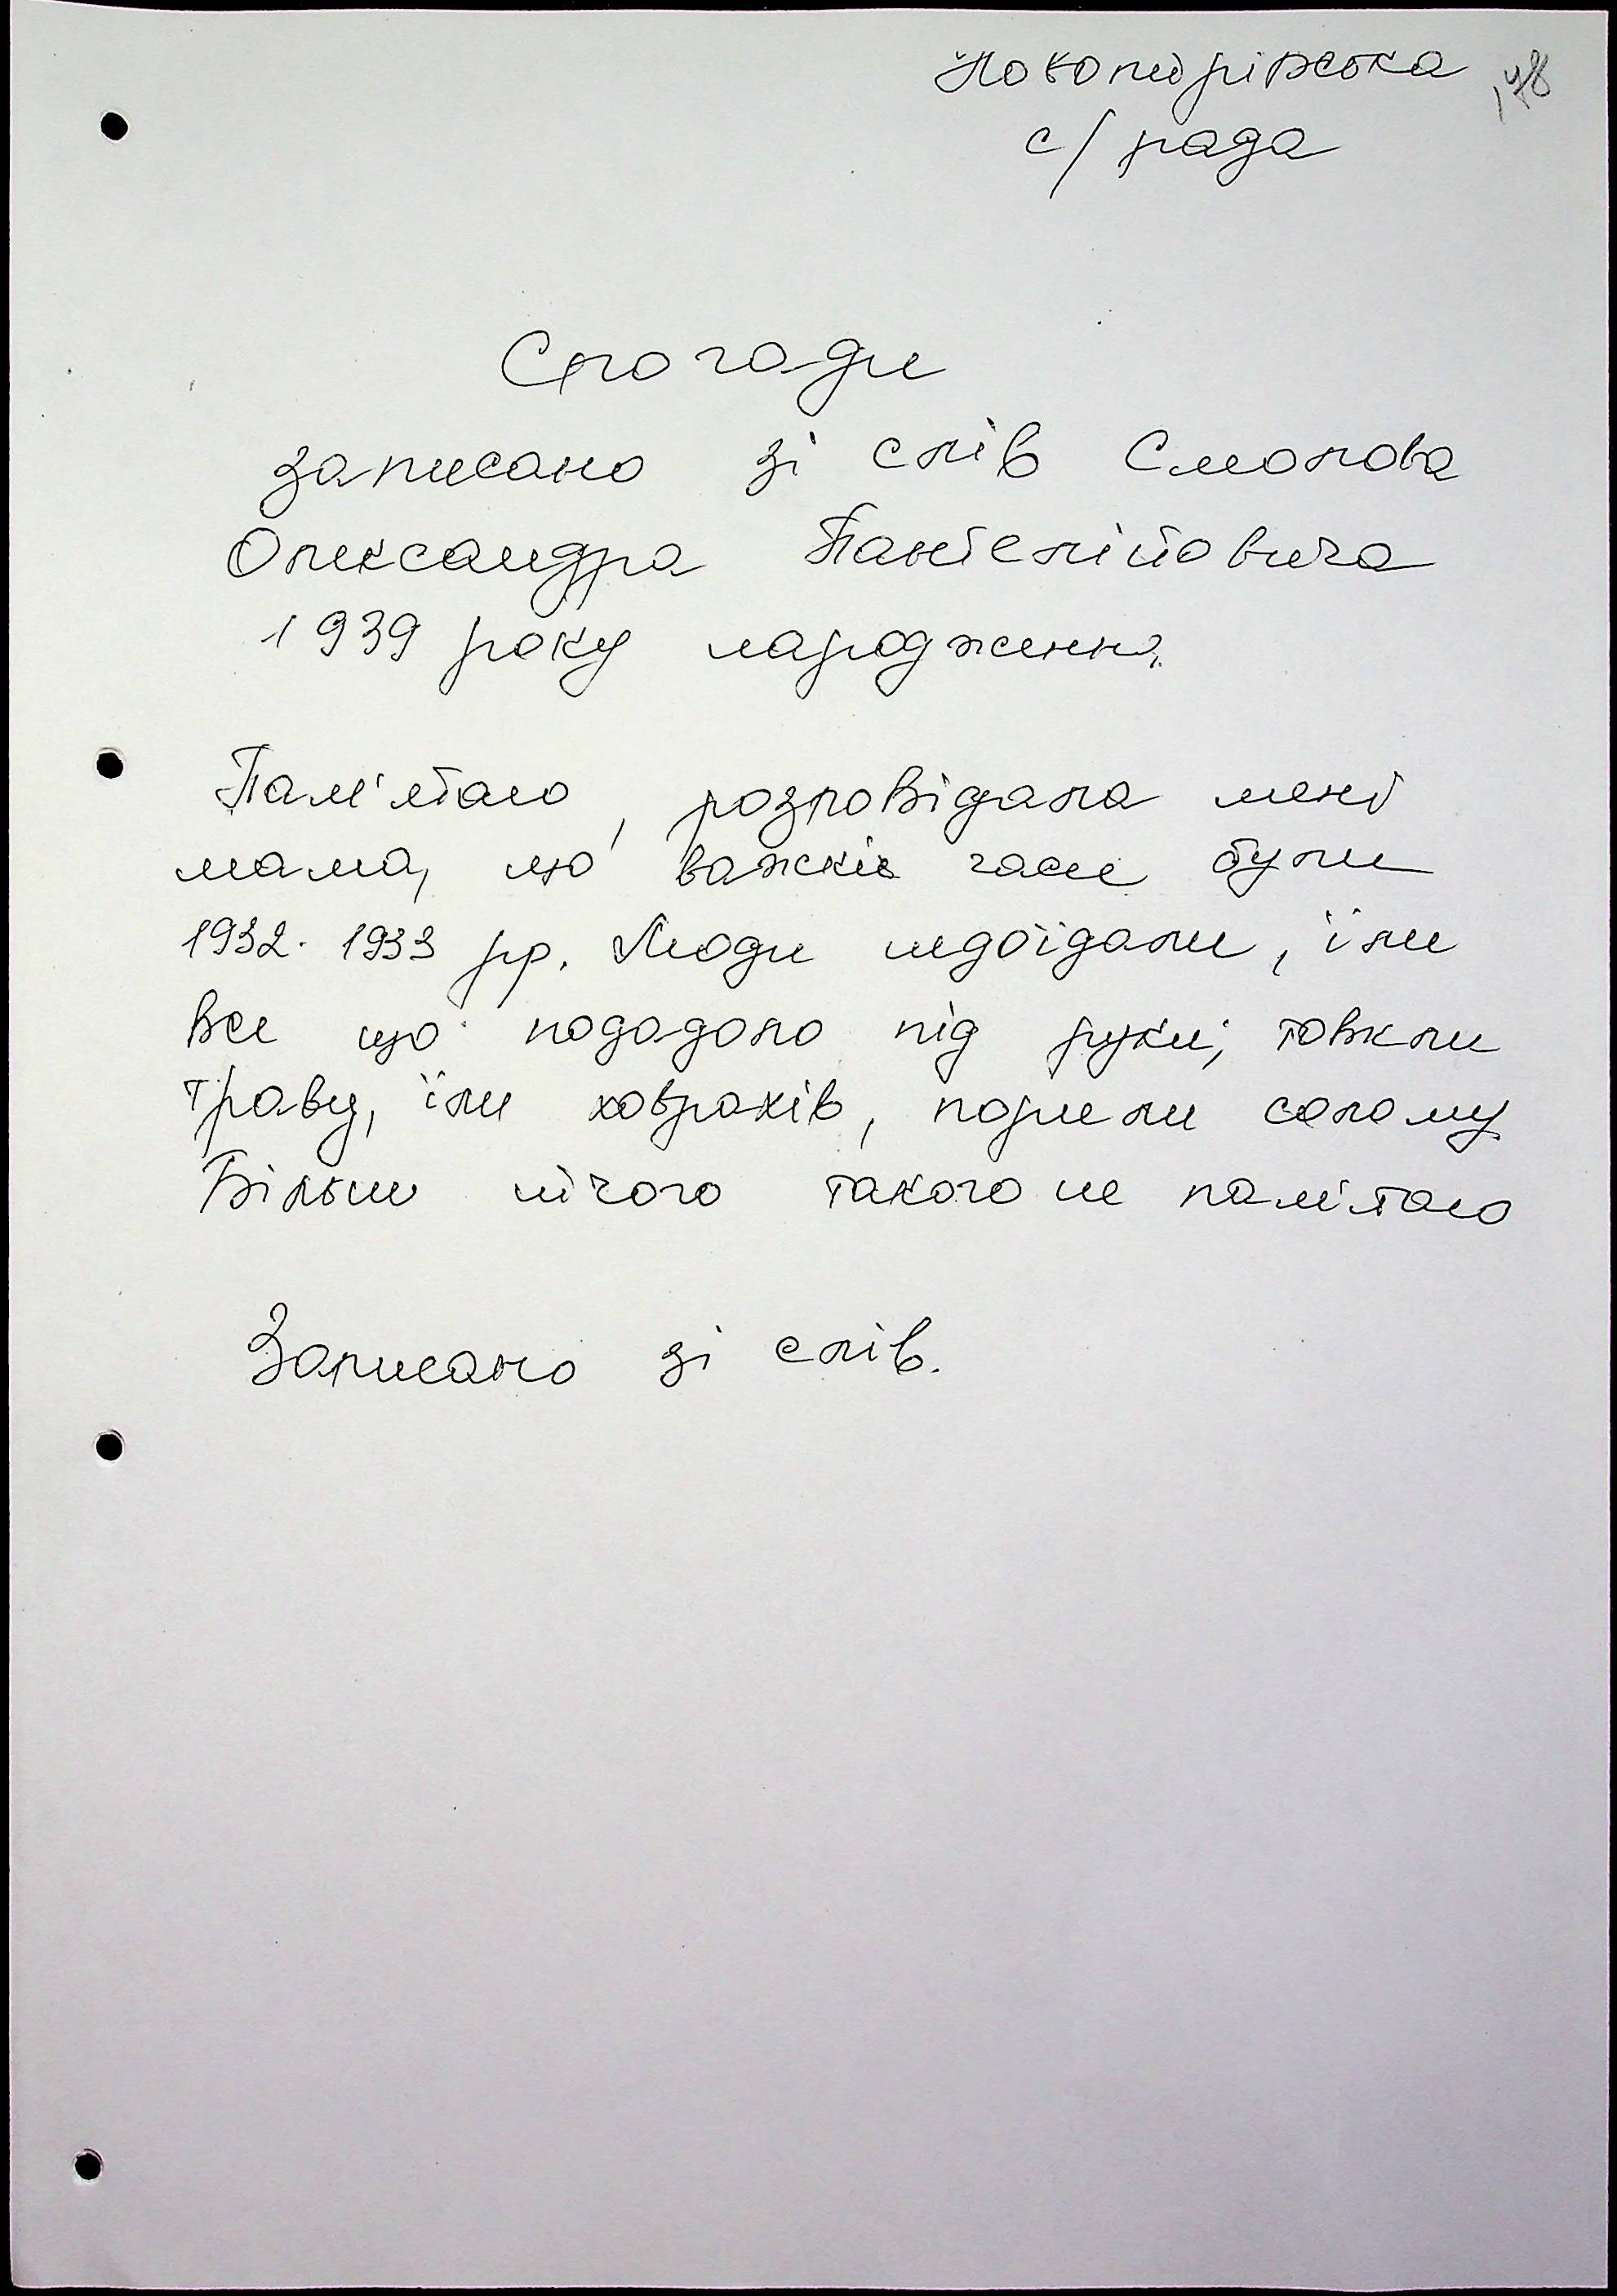 Новопетрівська
с/рада
178
Спогади
записано зі слів Смолова
Олександра Пантелійовича
1939 року народження.
Пам'ятаю, розповідала мені
мама, що важкіє часи були
1932-1933 рр. Люди недоїдали, їли
все що подадало під руки, товкли
траву, їли ховрахів, парили солому
Більш нічого такого не пам'ятаю
Записано зі слів.